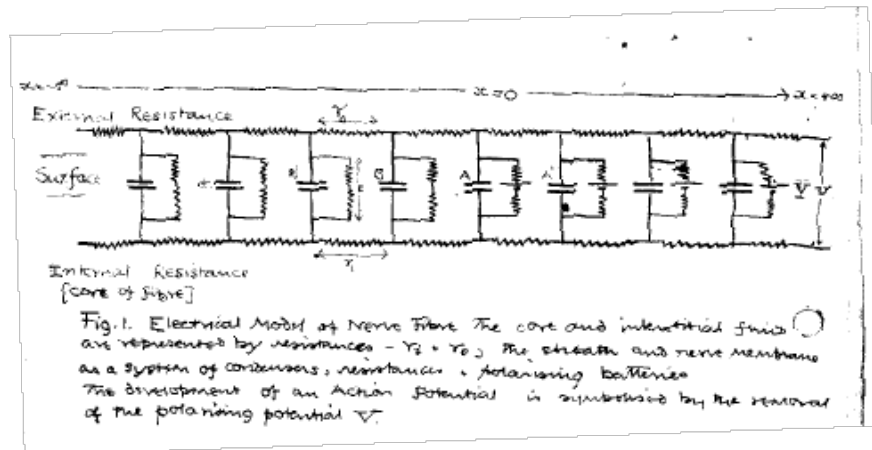 x=0
External Resistance
r₀
Surface
B A A'
V
r₁
Internal Resistance
[core of fibre]
Fig. 1. Electrical Model of Nerve Fibre The core and interstitial fluid
are represented by resistances - r₁ + r₀, the sheath and nerve membrane
as a system of condensers, resistances + polarising batteries
The development of an Action Potential is symbolised by the removal
of the polarising potential V.